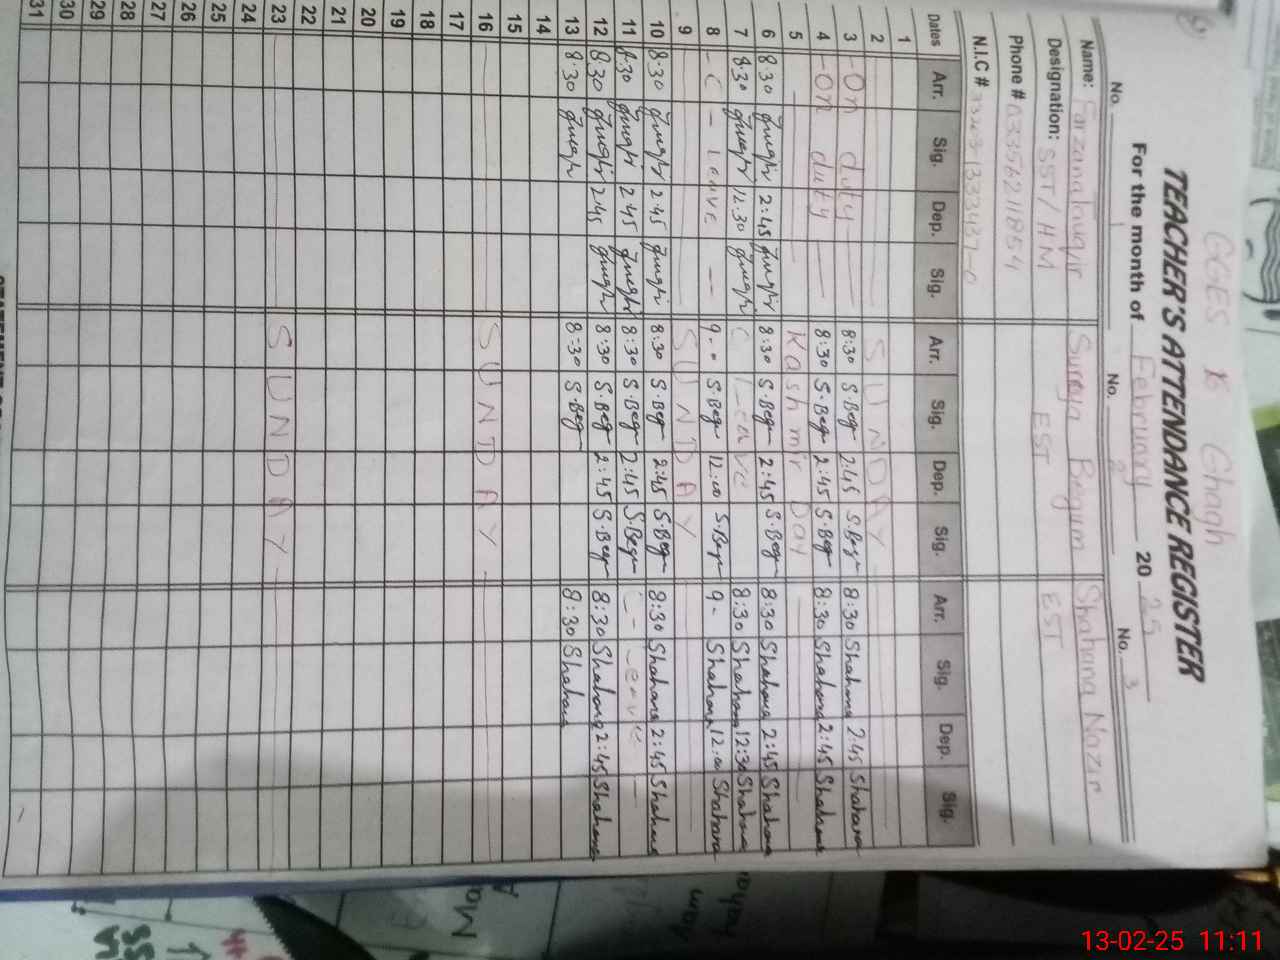 GGES Ghagh
TEACHER'S ATTENDANCE REGISTER
For the month of February 20 25
No. No. 2 No. 3
Name: Farzana Suraya Begum Shahana Nazir
Designation: SST/HM EST EST
Phone # 03356211854
N.I.C #
Dates Arr. Sig. Dep. Sig. Arr. Sig. Dep. Sig. Arr. Sig. Dep. Sig.
1
2 SUNDAY
3 -On duty- 8:30 S.Beg 2:45 S.Beg 8:30 Shahana 2:45 Shahana
4 -On duty 8:30 S.Beg 2:45 S.Beg 8:30 Shahana 2:45 Shahana
5 Kashmir Day
6 8:30 2:45 8:30 S.Beg 2:45 S.Beg 8:30 Shahana 2:45 Shahana
7 8:30 12:30 C Leave 8:30 Shahana 12:30 Shahana
8 - C - Leave -- 9-0 S.Beg 12:00 S.Beg 9- Shahana 12:00 Shahana
9 SUNDAY
10 8:30 2:45 8:30 S.Beg 2:45 S.Beg 8:30 Shahana 2:45 Shahana
11 8:30 2:45 8:30 S.Beg 2:45 S.Beg C - Leave -
12 8:30 2:45 8:30 S.Beg 2:45 S.Beg 8:30 Shahana 2:45 Shahana
13 8:30 8:30 S.Beg 8:30 Shahana
14
15
16 SUNDAY
17
18
19
20
21
22
23 SUNDAY
24
25
26
27
28
29
30
31
13-02-25 11:11